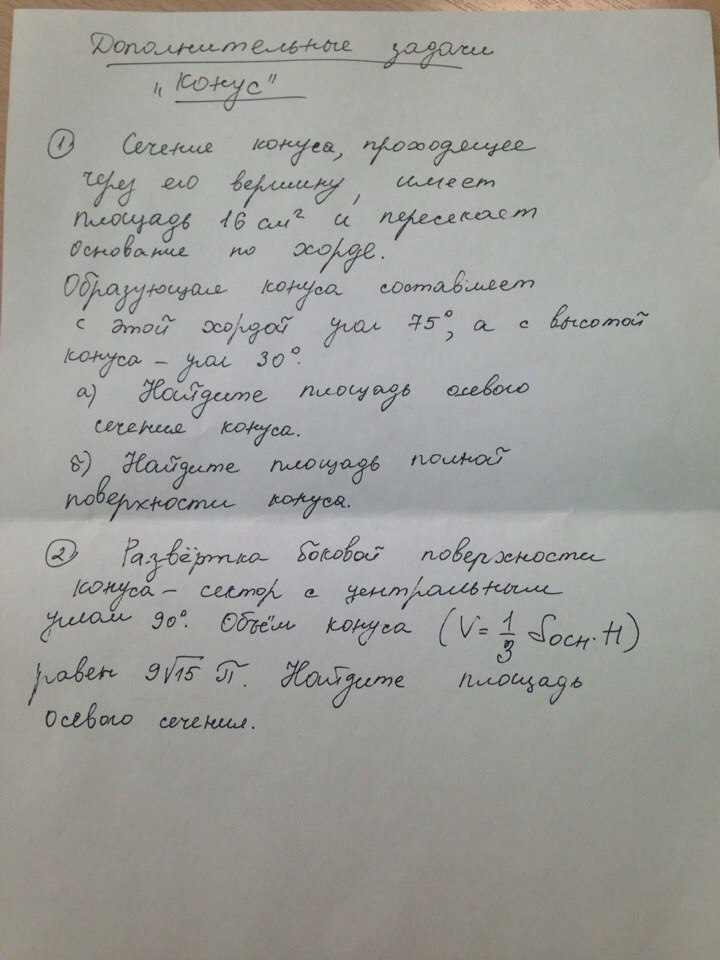 Дополнительные задачи
"Конус"
① Сечение конуса, проходящее
через его вершину, имеет
площадь 16 см² и пересекает
основание по хорде.
Образующая конуса составляет
с этой хордой угол 75°, а с высотой
конуса – угол 30°.
а) Найдите площадь осевого
сечения конуса.
б) Найдите площадь полной
поверхности конуса.
② Развёртка боковой поверхности
конуса – сектор с центральным
углом 90°. Объём конуса (V = 1/3 Sосн · H)
равен 9√15 П. Найдите площадь
осевого сечения.